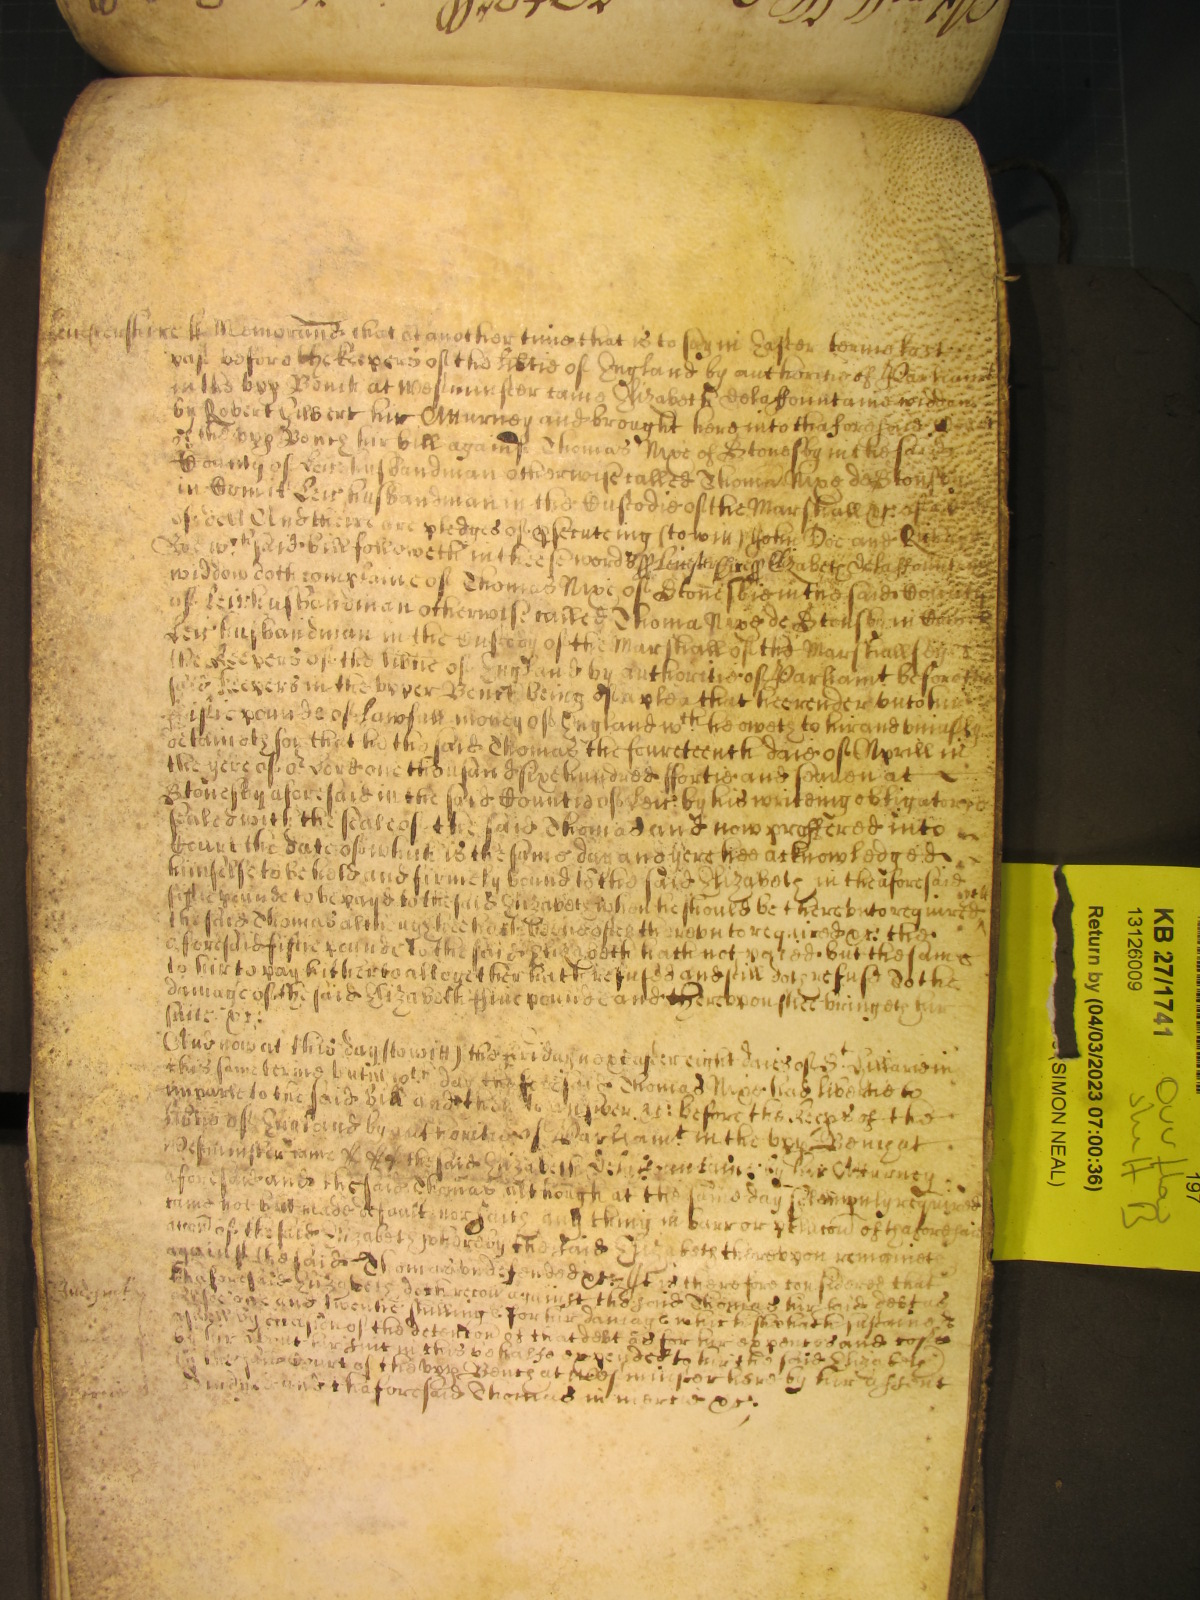 Leicestershire ss Memorand that at another time that is to say in Easter terme last
past before the Keepers of the libtie of England by authoritie of Parliamt
in the vpp Bench at Westminster came Elizabeth Delaffountaine widdow
by Robert Hilbert hir Atturney and brought here into thaforesaid Court
of the vpp Bench hir bill against Thomas Nixe of Stonesby in the said
County of Leic husbandman otherwise called Thoma Nixe de Stonsby
in Comit Leic husbandman in the Custodie of the Marshall &c: of a
of debt And there are pledges of psecuteing (to wit) John Doe and Richard
Roe wch said bill followeth in these words ss Leic ss Elizabeth Delaffountaine
widdow doth complaine of Thomas Nixe of Stonesbie in the said County
of Leic husbandman otherwise called Thoma Nixe de Stonsby in Comit
Leic husbandman in the Custody of the Marshall of the Marshallsey
the Keepers of the libtie of England by authoritie of Parliamt before the
said Keepers in the vpper Bench being of a plea that hee render vnto hir
fiftie pounds of lawfull money of England wch he oweth to hir and vniustly
detaineth for that he the said Thomas the foureteenth daie of Aprill in
the yere of or Lord one thousand sixe hundred ffortie and seaven at
Stonesby aforesaid in the said Countie of Leic by his writeing obligatory
sealed with the seale of the said Thomas and now proffered into
Court the date of which is the same day and yere hee acknowledged
himselfe to be held and firmely bound to the said Elizabeth in the aforesaid
fiftie pounds to be payd to the said Elizabeth when he should be therevnto required yett
the said Thomas although hee hath beene often therevnto required &c: the
aforesaid fiftie pounds to the said Elizabeth hath not payed but the same
to hir to pay hitherto altogether hath refused and still doth refuse To the
damage of the said Elizabeth ffive pounds and therevpon shee bringeth hir
suite &c:
And now at this day (to witt) the friday next after eight daies of St Hillarie in
this same terme vntill wch day the foresaid Thomas Nixe had libertie to
imparle to the said bill and then to answer &c: before the Keeps of the
libtie of England by authoritie of Parliamt in the vpp Bench at
Westminster came the said Elizabeth Delafountaine by hir Atturney
aforesaid and the said Thomas although at the same day solempnly required
came not but made default nor saith any thing in barr or of thaforesaid
accon of the said Elizabeth whereby the said Elizabeth therevpon remaineth
against the said Thomas vndefended &c: It is therefore considered that
thaforesaid Elizabeth doe recou against the said Thomas hir said debt and
one and twentie shillings for hir damages which she hath susteined
aswell by occasion of the detencon of that debt as for hir expences and costs
by hir about hir suit in this behalfe expended to hir the said Elizabeth
by the Court of the vpp Bench at Westminster here by hir assent
and thaforesaid Thomas in mercie &c:
KB 27/1741
13126009
Return by (04/03/2023 07:00:36)
(SIMON NEAL)
197